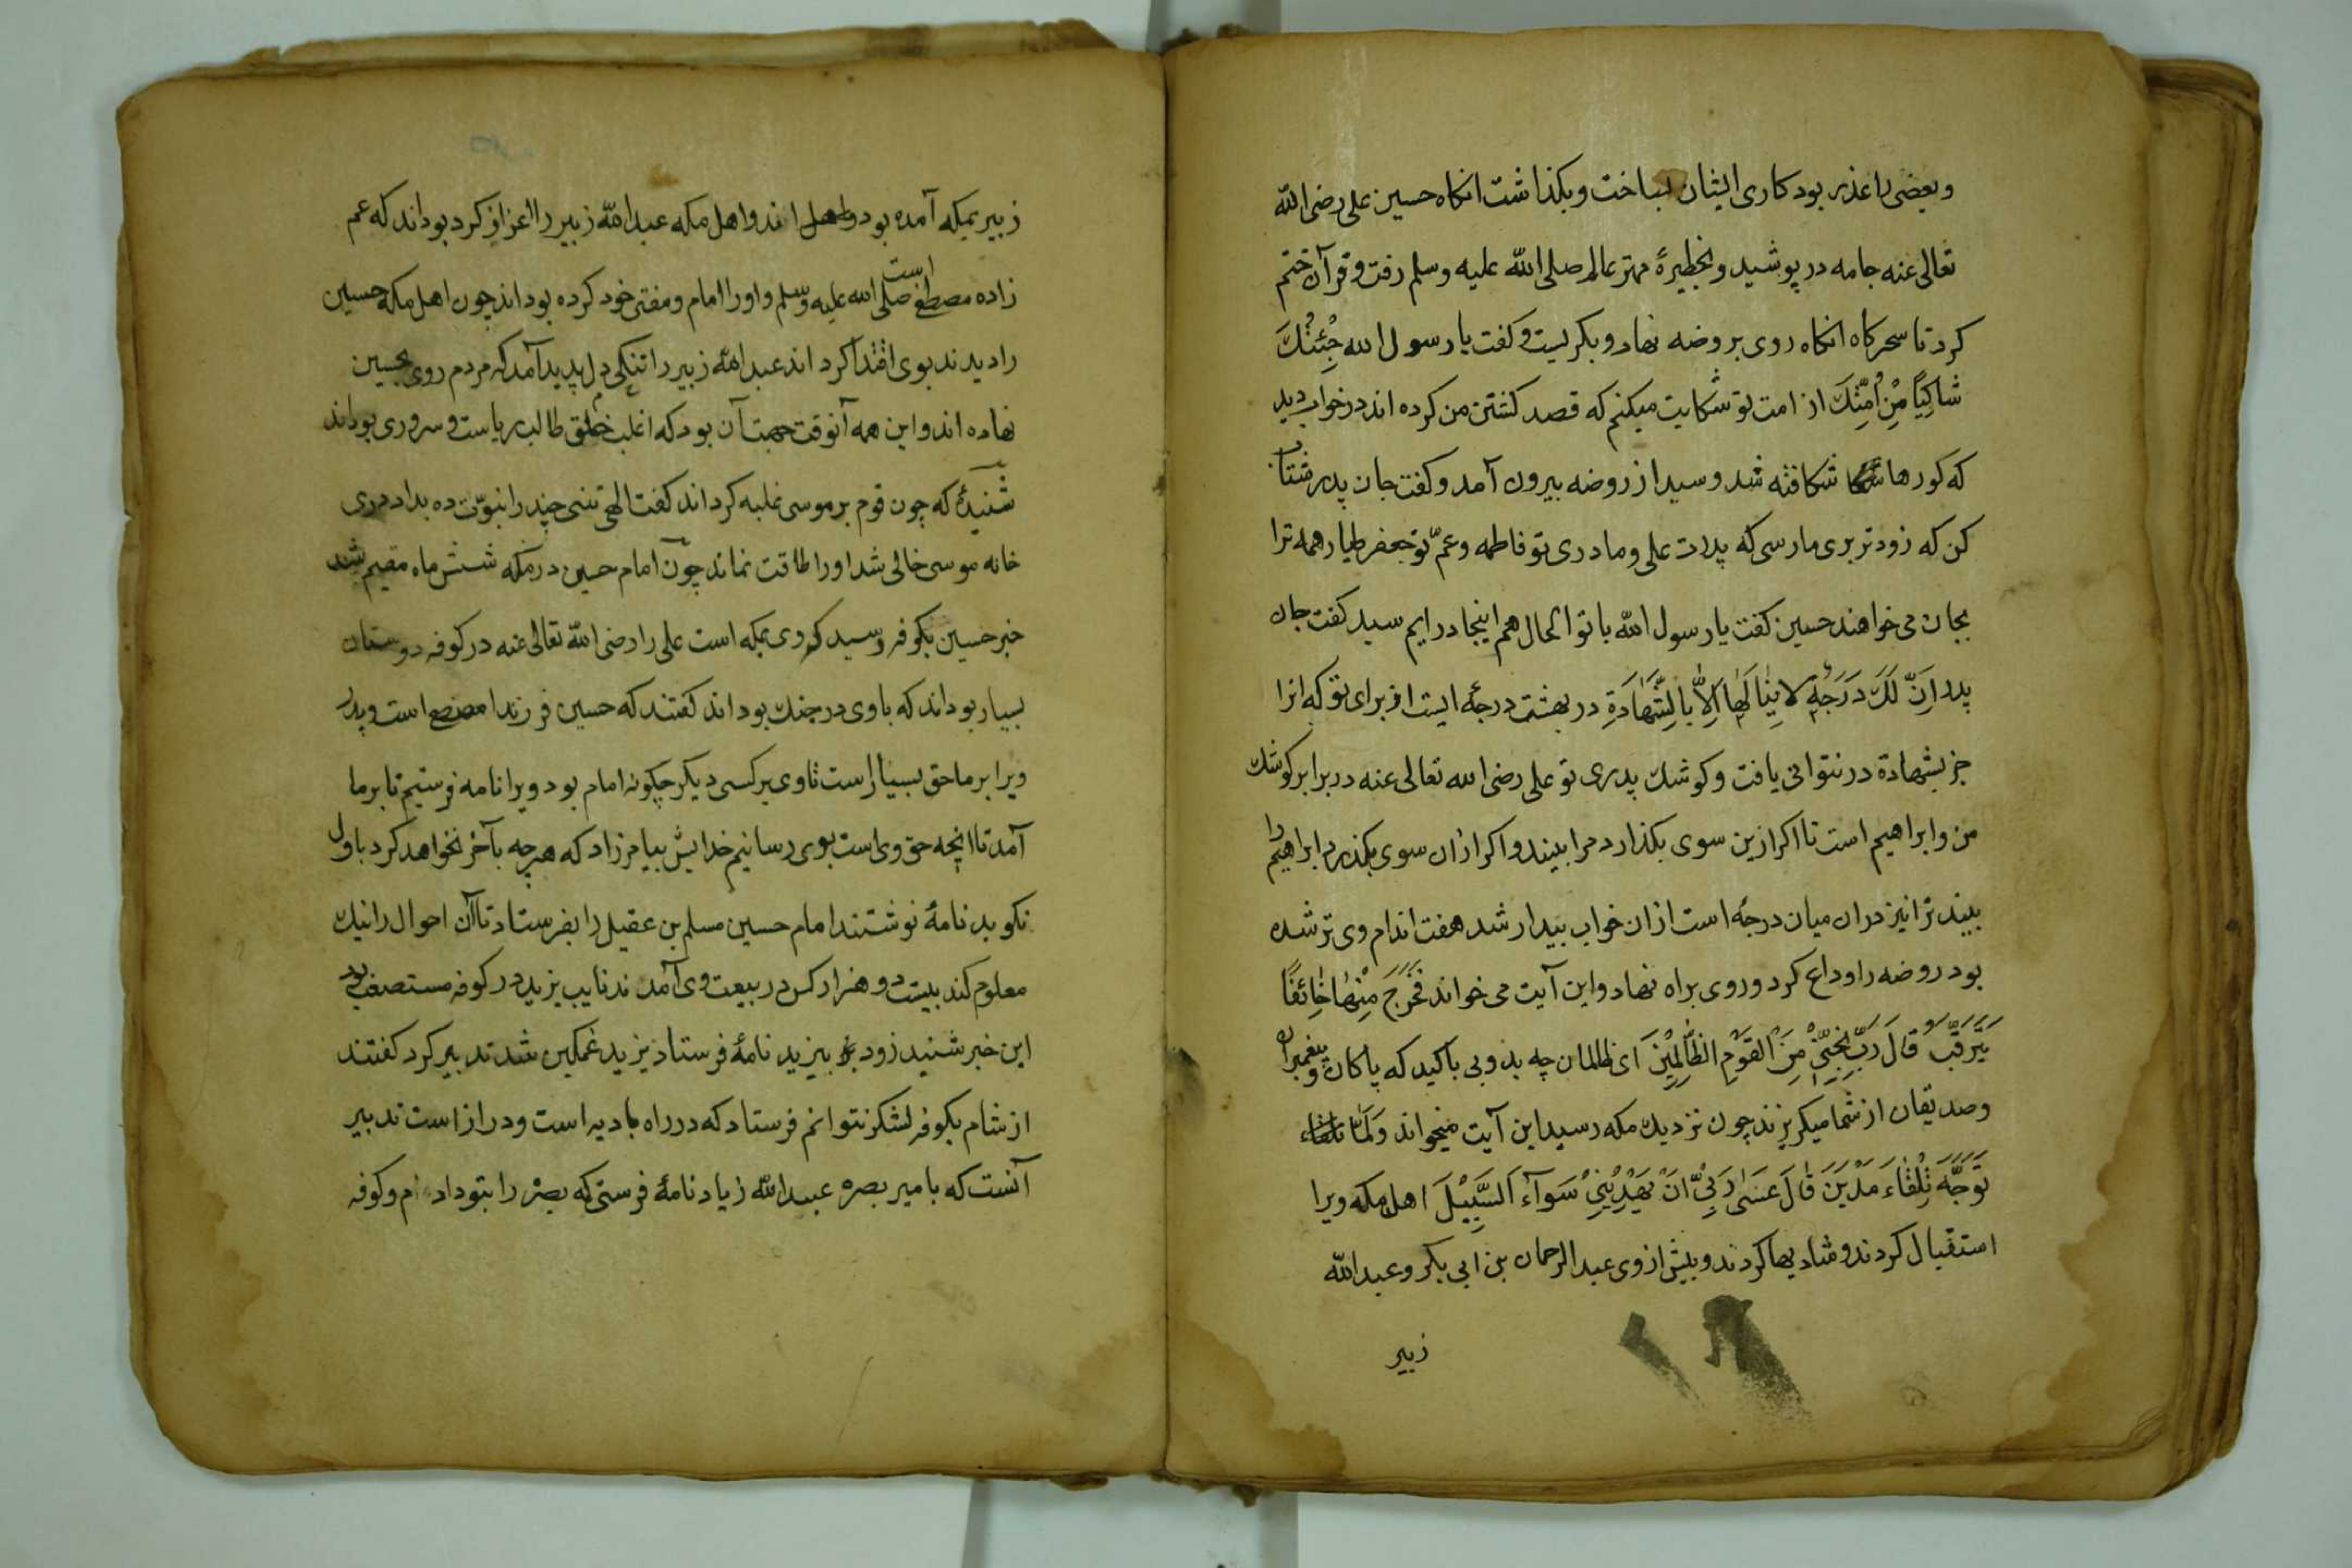 وبعضی را عذر بود کاری ایشان بساخت وبکذاشت انکاه حسین علی رضی الله
تعالی عنه جامه در پوشید و بخطیرۀ مهتر عالم صلی الله علیه وسلم رفت و قرآن ختم
کرد تا سحرکاه انکاه روی بروضه نهاد و بکریست و کفت یا رسول الله جِئْتُكَ
شاکِیًا مِنْ اُمَّتِكَ از امت تو شکایت میکنم که قصد کشتن من کرده اند در خواب دید
که کورها شکافته شد و سید از روضه بیرون آمد و کفت جان پدر شتاب
کن که زودتر بری ما رسی که پدرت علی و مادری تو فاطمه و عمّ تو جعفر طیار همه ترا
بجان می خواهند حسین کفت یا رسول الله با تو الحال هم اینجا در ایم سید کفت جان
پدر اِنَّ لَكَ دَرَجَةٍ لا یَنٰالَهٰا اِلاّٰ بِالشَّهٰادَةِ در بهشت درجۀ ایست از برای تو که انرا
جز بشهادة در نتوانی یافت و کوشك پدری تو علی رضی الله تعالی عنه در برابر کوشك
من وابراهیم است تا اکر ازین سوی بکذارد مرا بیند و اکر ازان سوی بکذرد ابراهیم را
بیند ترا نیز دران میان درجۀ است ازان خواب بیدار شد هفت اندام وی تر شده
بود روضه را وداع کرد و روی براه نهاد واین آیت می خواند فَخَرَجَ مِنْهٰا خٰائِفًا
یَتَرَقَّبُ قٰالَ رَبِّ نَجِّنِیْ مِنَ الْقَوْمِ الظّٰالِمِیْنَ ای ظالمان چه بد و بی باکید که پاکان و پیغمبران
وصدیقان از شما میکریزند چون نزدیك مکه رسید این آیت میخواند وَلَمّٰا تلقاء
تَوَجَّهَ تِلْقٰاءَ مَدْیَنَ قٰالَ عَسٰی رَبِّیْ اَنْ یَهْدِیَنِیْ سَوآءَ السَّبِیْلَ اهل مکه ویرا
استقبال کردند و شادیها کردند و بیش از وی عبد الرحمان بن ابی بکر و عبد الله
زبیر
زبیر بمکه آمده بود واهل اند واهل مکه عبد الله زبیر را اعزاز کرد بوداند که عم
زاده مصطفی است صلی الله علیه وسلم واورا امام ومفتی خود کرده بوداند چون اهل مکه حسین
را دیدند بوی اقتدا کرد اند عبد الله زبیر را تنکی دل پدید آمد که مردم روی بحسین
نهاده اند واین همه آنوقت جهت آن بود که اغلب خلق طالب ریاست و سروری بوداند
شنیدۀ که چون قوم بر موسی غلبه کرد اند کفت الهی تنی چند را نبوّت ده بداد دری
خانه موسی خالی شد اورا طاقت نماند چون امام حسین در مکه شش ماه مقیم شد
خبر حسین بکوفه رسید که وی بمکه است علی را رضی الله تعالی عنه در کوفه دوستان
بسیار بوداند که باوی در جنك بوداند کفتند که حسین فرزند است وپدر
ویرا بر ما حق بسیار است تا وی بر کسی دیکر چکونه امام بود ویرا نامه فرستیم تا بر ما
آمد تا انچه حق وی است بوی رسانیم خدایش بیامرزاد که هرچه بآخر نخواهد کرد باول
نکوید نامۀ نوشتند امام حسین مسلم بن عقیل را بفرستاد تا آن احوال را نیك
معلوم کند بیست و هزار کس در بیعت وی آمدند نایب یزید در کوفه مستضعف بود
این خبر شنید زود بیزید نامۀ فرستاد یزید غمکین شد تدبیر کرد کفتند
از شام بکوفه لشکر نتوانم فرستاد که در راه بادیه است و دراز است تدبیر
آنست که بامیر بصره عبید الله زیاد نامۀ فرستی که بصره را بتو دادم وکوفه